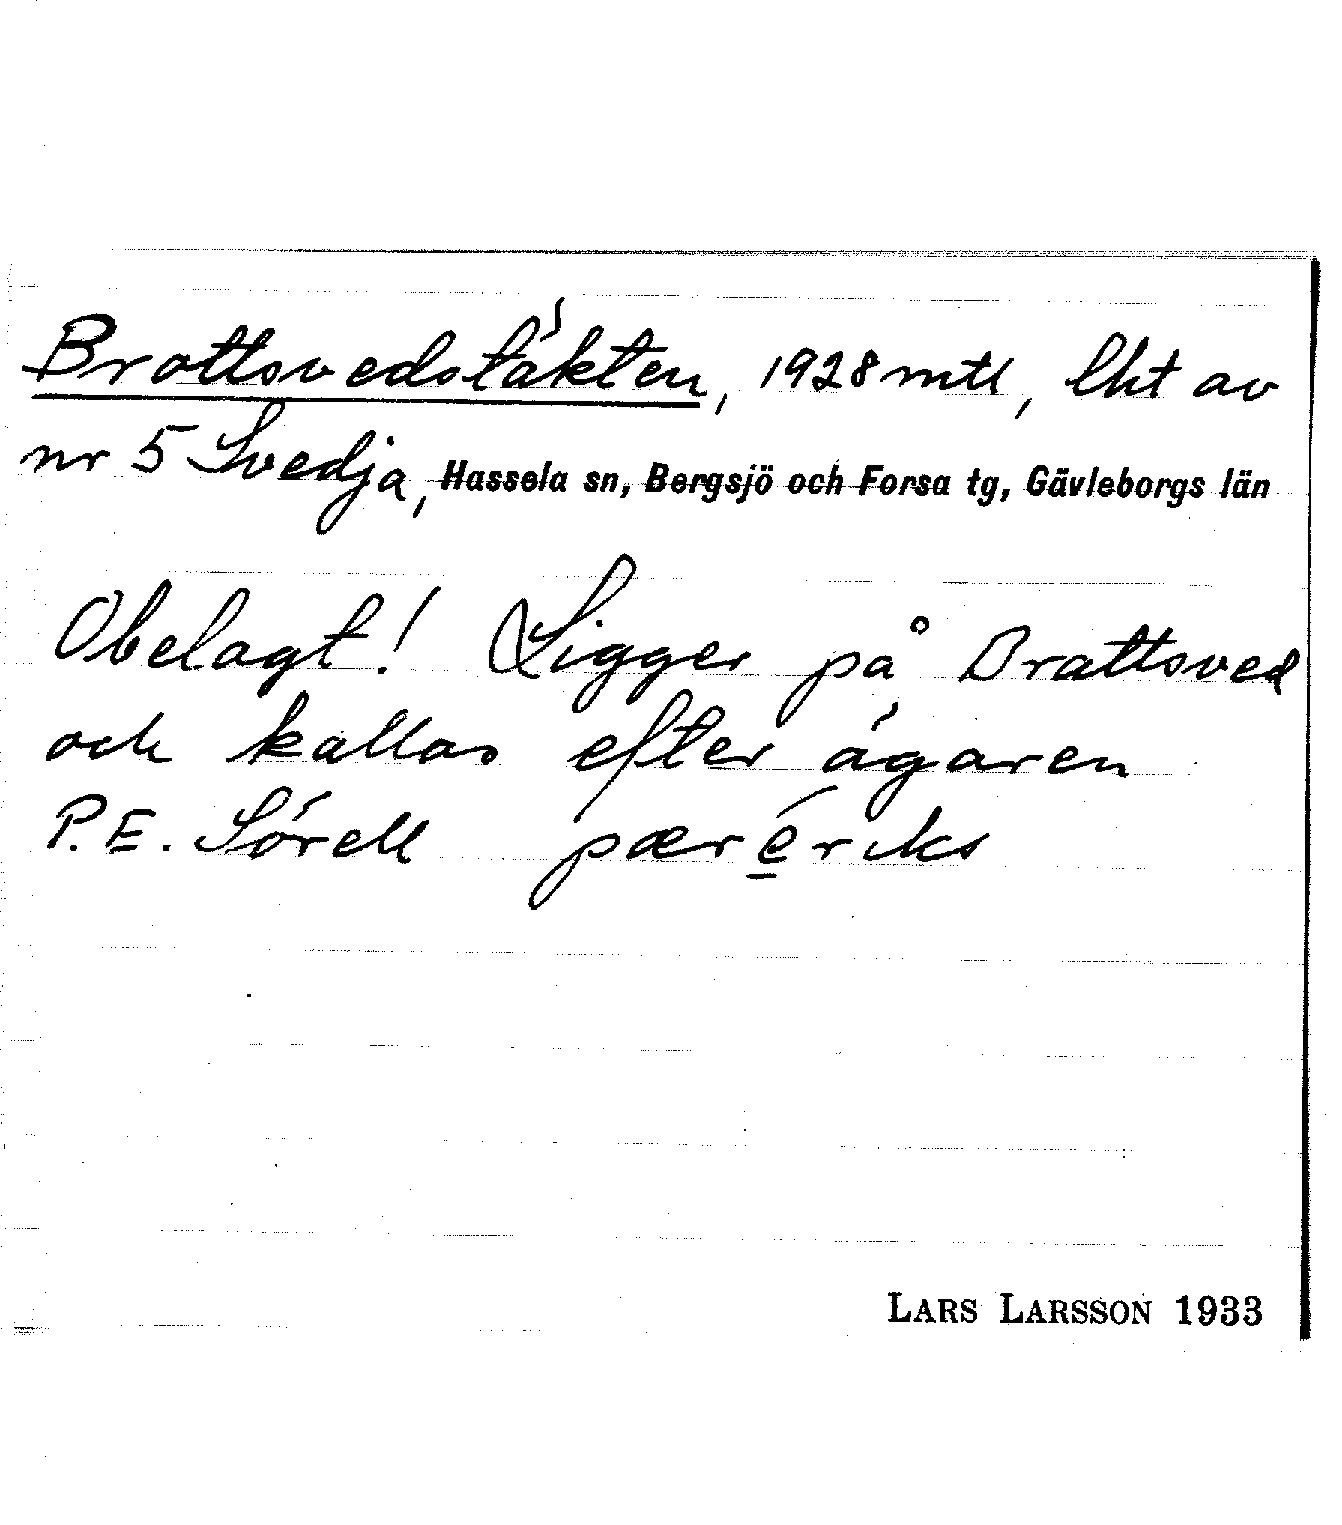 Brattsvedstäkten, 1928 mtl, lht av
nr 5 Svedja, Hassela sn, Bergsjö och Forsa tg, Gävleborgs län
Obelagt! Ligger på Brattsved
och kallas efter ägaren
P.E. Sörell pæreriks
LARS LARSSON 1933